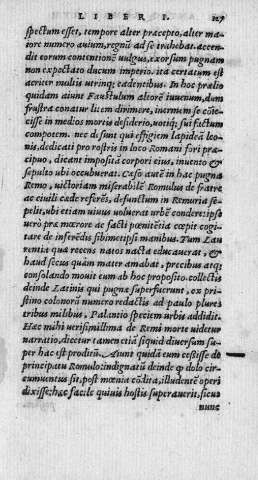 LIBER I. 127
spectum esset, tempore alter præcepto, alter ma
iore numero auium, regnū ad se trahebat. accen-
dit eorum contentionẽ uulgus, exorsum pugnam
non expectato ducum imperio. ita certatum est
acriter multis utrinq; cadentibus. In hoc prælio
quidam aiunt Faustulum altorẽ iuuenum, dum
frustra conatur litem dirimere, inermem se cōie-
cisse in medios mortis desiderio, uotiq; sui factum
compotem. nec desunt qui effigiem lapideā leo-
nis, dedicati pro rostris in loco Romani fori præ-
cipuo, dicant impositā corpori eius, inuento &
sepulto ubi occubuerat. Cæso autẽ in hac pugna
Remo, uictoriam miserabilẽ Romulus de fratre
ac ciuili cæde referẽs, defunctum in Remuria se-
pelit, ubi etiam uiuus uoluerat urbẽ condere: ipse
uerò præ mœrore ac facti pœnitẽtia cœpit cogi-
tare de inferẽdis sibimetipsi manibus. Tum Lau
rentia quæ recens natos nacta educauerat, &
haud secus quàm mater amabat, precibus atq;
consolando mouit eum ab hoc proposito. collectis
deinde Latinis qui pugnæ superfuerunt, ex pri
stino colonorū numero redactis ad paulo plures
tribus milibus, Palantio speciem urbis addidit.
Hæc mihi uerisimillima de Remi morte uidetur
narratio, dicetur tamen etiā si quid diuersum su-
per hac est proditū. Aiunt quidā eum cessisse de
principatu Romulo: indignatū deinde dolo cir-
cumuentus sit, post mœnia cōdita, illudentẽ operi
dixisse: hæc facile quiuis hostis superauerit, sicut
nunc